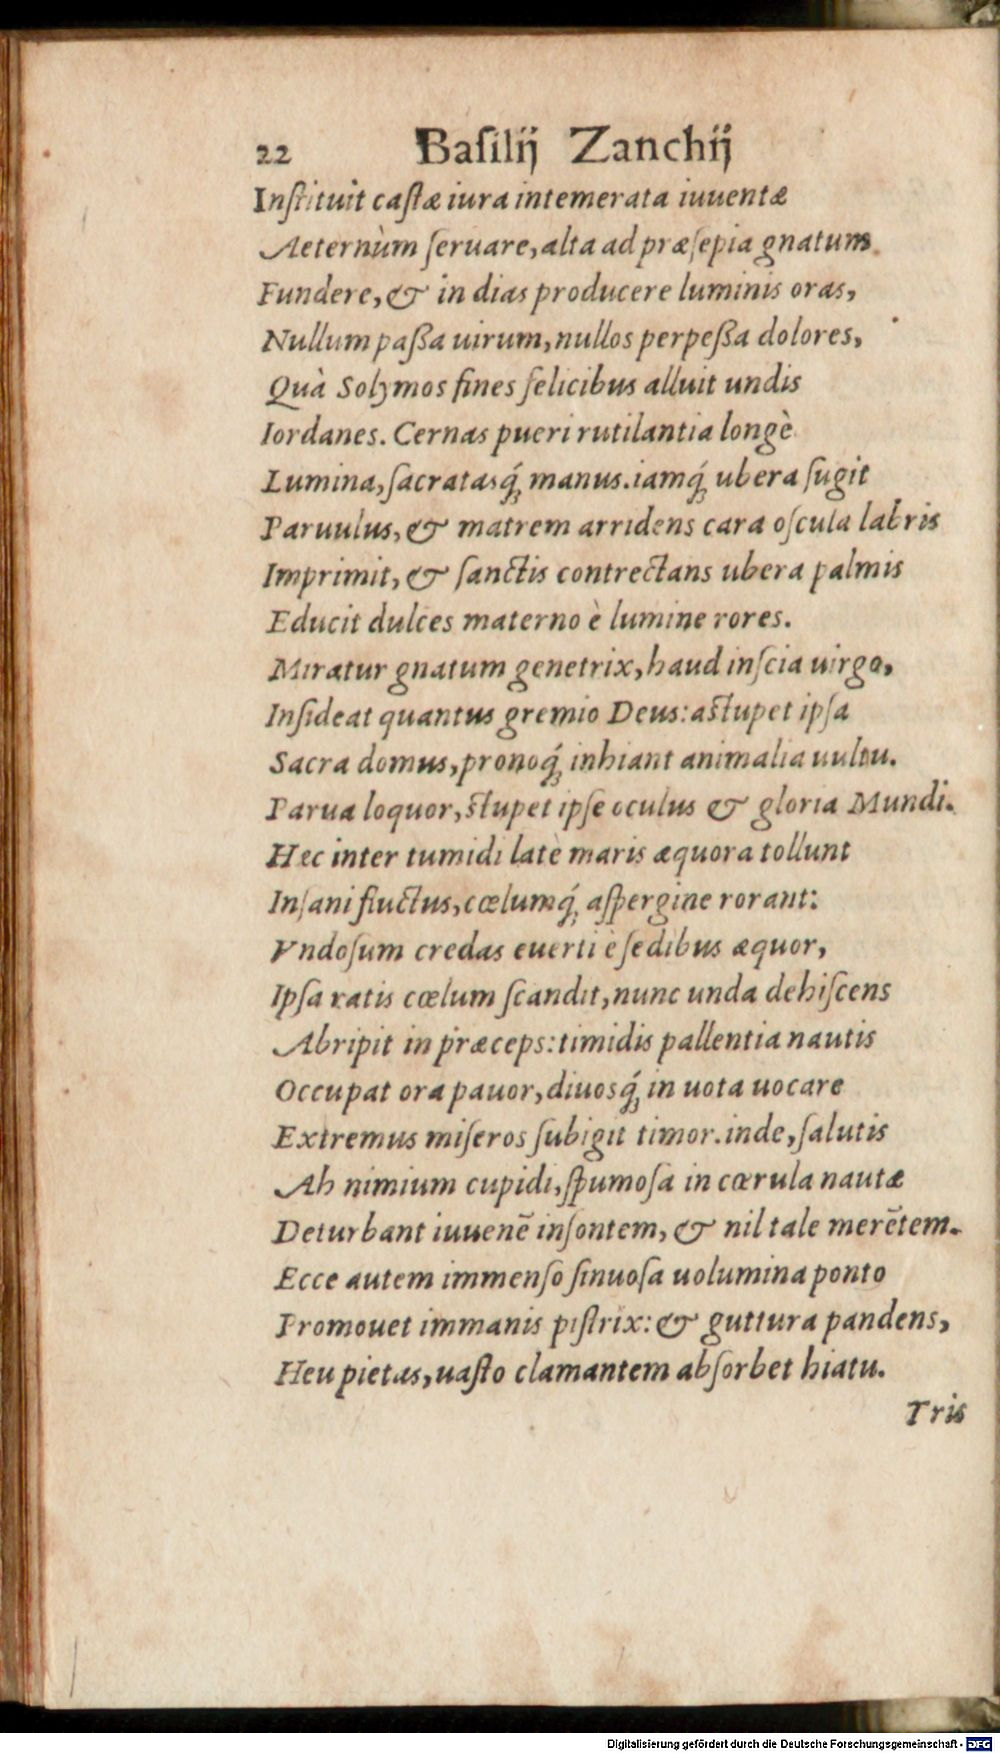 22 Baſilij Zanchij
Inſtituit caſtæ iura intemerata iuuentæ
Aeternùm ſeruare, alta ad præſepia gnatum
Fundere, & in dias producere luminis oras,
Nullum paſſa uirum, nullos perpeſſa dolores,
Quà Solymos fines felicibus alluit undis
Iordanes. Cernas pueri rutilantia longè
Lumina, ſacratasq́; manus. iamq́; ubera ſugit
Paruulus, & matrem arridens cara oſcula labris
Imprimit, & ſanctis contrectans ubera palmis
Educit dulces materno è lumine rores.
Miratur gnatum genetrix, haud inſcia uirgo,
Inſideat quantus gremio Deus: aſtupet ipſa
Sacra domus, pronoq́; inhiant animalia uultu.
Parua loquor, ſtupet ipſe oculus & gloria Mundi.
Hec inter tumidi latè maris æquora tollunt
Inſani fluctus, cœlumq́; aſpergine rorant:
Vndoſum credas euerti è ſedibus æquor,
Ipſa ratis cœlum ſcandit, nunc unda dehiſcens
Abripit in præceps: timidis pallentia nautis
Occupat ora pauor, diuosq́; in uota uocare
Extremus miſeros ſubigit timor. inde, ſalutis
Ah nimium cupidi, ſpumoſa in cœrula nautæ
Deturbant iuuenē inſontem, & nil tale merētem.
Ecce autem immenſo ſinuoſa uolumina ponto
Promouet immanis piſtrix: & guttura pandens,
Heu pietas, uaſto clamantem abſorbet hiatu.
Tris
Digitalisierung gefördert durch die Deutsche Forschungsgemeinschaft - DFG